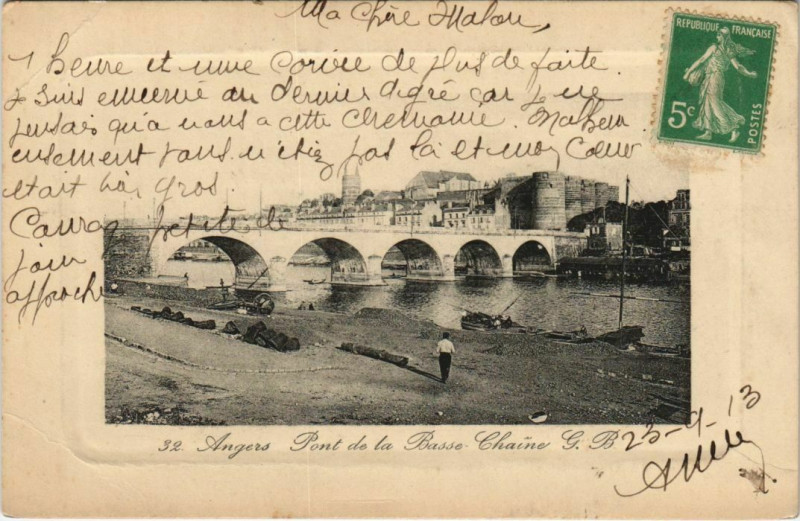 Ma Chère Malou,
1 heure et une Corvée de plus de faite.
J suis émervé au dernier degré car j ne
pensais qu'a nous a cette Cheminanie. Malheu
eusement vous n'etiez pas là et mon Coeur
etait bien gros.
Courag petite le
jour
approche
RÉPUBLIQUE FRANÇAISE
5c
POSTES
32. Angers Pont de la Basse-Chaîne G. B.
23-9-13